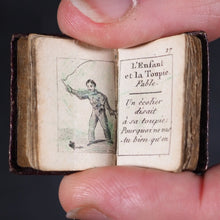 17
L'Enfant
et la Toupie.
Fable.
Un écolier
disait
à sa toupie:
Pourquoi ne vas
tu bien qu'en